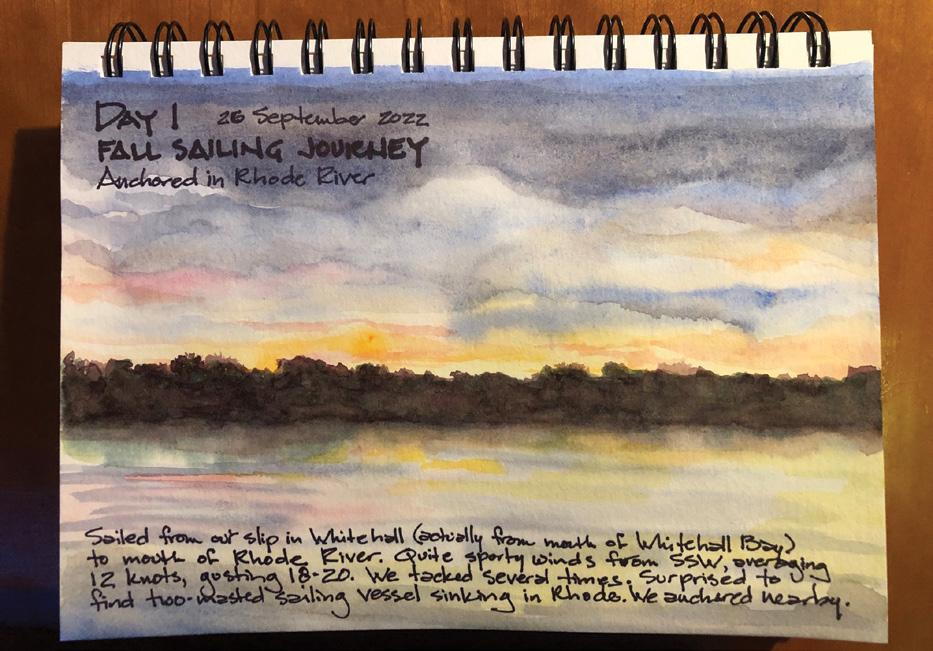 DAY 1 26 September 2022
FALL SAILING JOURNEY
Anchored in Rhode River
Sailed from our slip in Whitehall (actually from mouth of Whitehall Bay)
to mouth of Rhode River. Quite sporty winds from SSW, averaging
12 knots, gusting 18-20. We tacked several times. Surprised to
find two-masted sailing vessel sinking in Rhode. We anchored nearby.